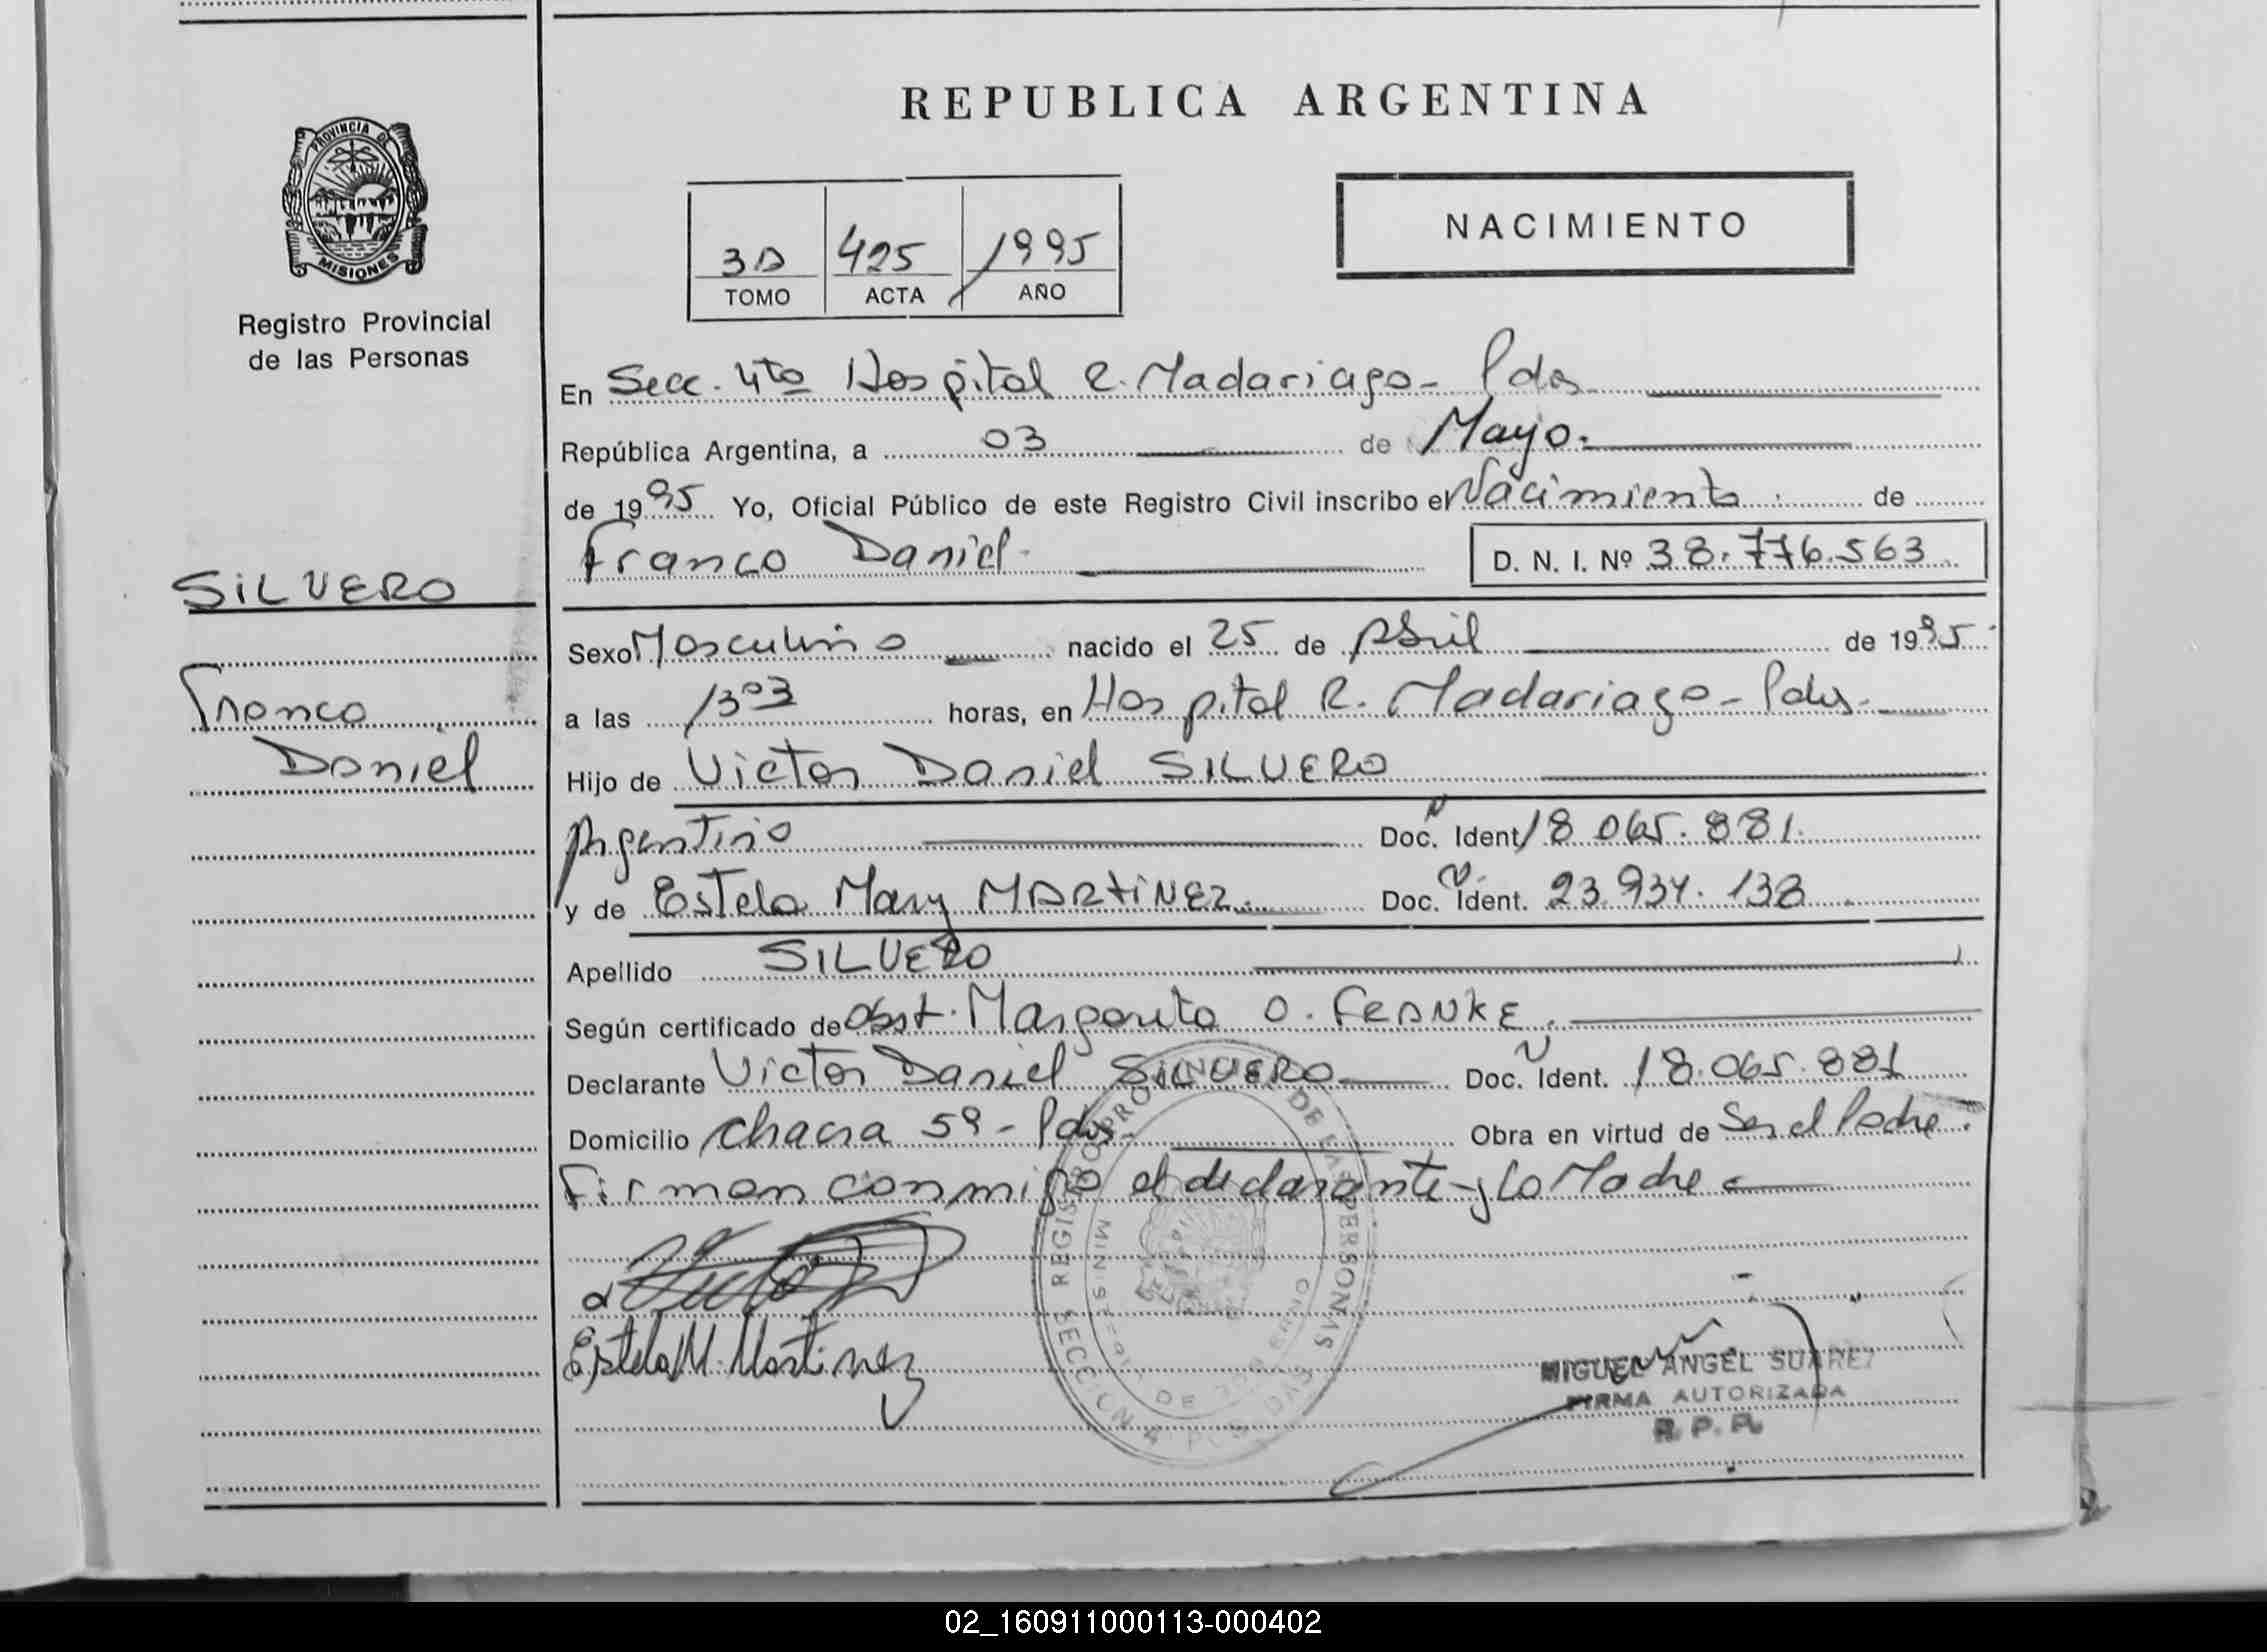 REPUBLICA ARGENTINA
PROVINCIA DE
MISIONES
Registro Provincial
de las Personas
NACIMIENTO
3D 425 1995
TOMO ACTA AÑO
En Secc. 4ta Hospital R. Madariaga - Pdas.
República Argentina, a 03 de Mayo.
de 1995 Yo, Oficial Público de este Registro Civil inscribo el Nacimiento de
Franco Daniel D. N. I. Nº 38.776.563
SILVERO
Franco
Daniel
Sexo Masculino nacido el 25 de Abril de 1995.
a las 13 03 horas, en Hospital R. Madariaga - Pdas.
Hijo de Victor Daniel SILVERO
Argentino Doc. N Ident. 18.065.881.
y de Estela Mary MARTINEZ. Doc. N. Ident. 23.934.138
Apellido SILVERO
Según certificado de Obst. Margarita O. FRANKE.
Declarante Victor Daniel SILVERO Doc. N Ident. 18.065.881
Domicilio Chacra 59 - Pdas. Obra en virtud de Ser el Padre.
Firman conmigo el declarante y La Madre
Estela M. Martinez
REGISTRO PROVINCIAL DE LAS PERSONAS
MINISTERIO DE GOBIERNO
SECCION 4 POSADAS
MIGUEL ANGEL SUAREZ
FIRMA AUTORIZADA
R. P. P.
02_160911000113-000402